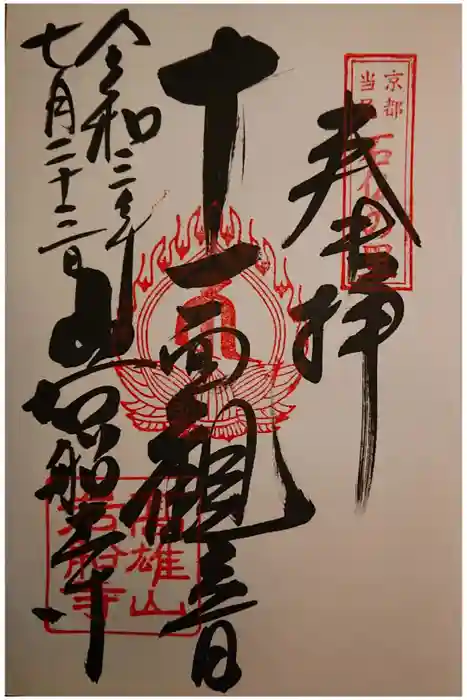 京都
当尾
石仏の里
奉拝
十一面観音
令和二年
七月二十三日
岩船寺
高雄山
岩船寺